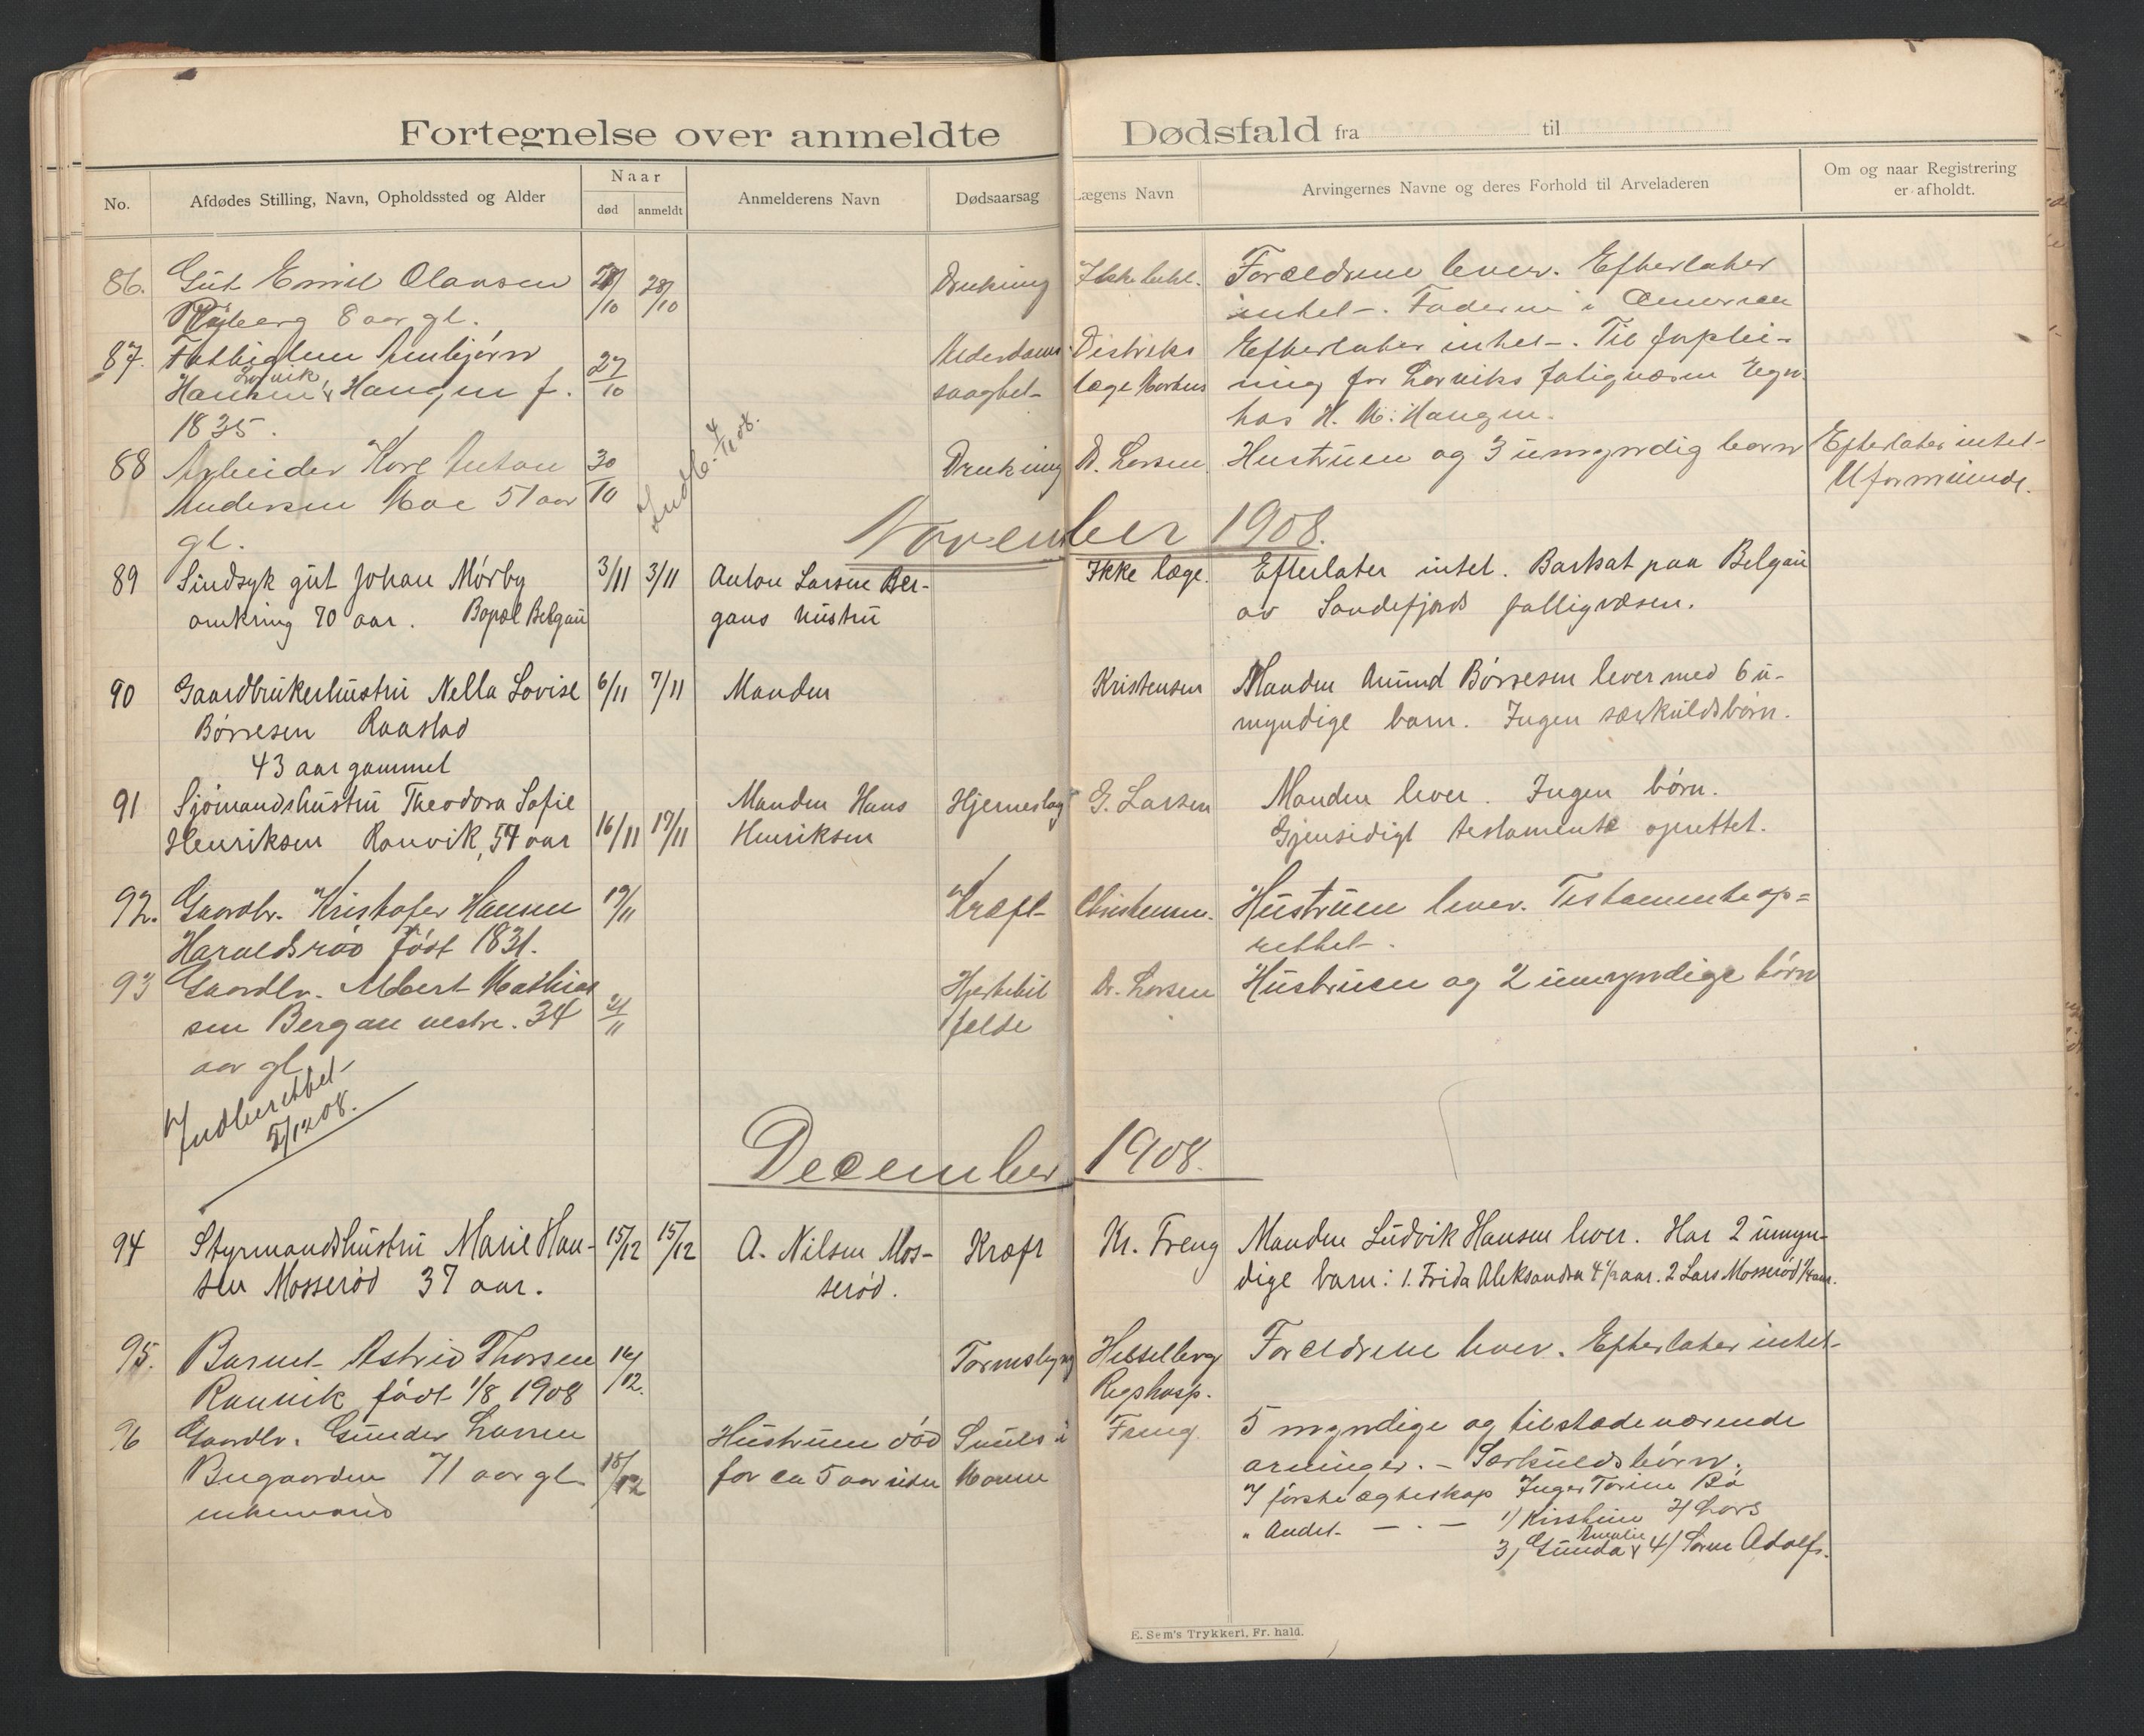 Fortegnelse over anmeldte Dødsfald fra til
No.
Afdødes Stilling, Navn, Opholdssted og Alder
Naar
død
anmeldt
Anmelderens Navn
Dødsaarsag
Lægens Navn
Arvingernes Navne og deres Forhold til Arveladeren
Om og naar Registrering
er afholdt.
86. Gut Emil Olausen 28/10 28/10 Drukning Forældrene lever. Efterlater
8 aar gl. intet. Faderen i Amerika
87. Arnbjørn 27/10 Alderdoms Distrikts Efterlater intet. Til
Larvik
Hansen, Haugen f. svaghet læge for Larviks
1835. hos H. M. Haugen.
88 Arbeider Karl Anton 30/10 Drukning Dr. Larsen Hustruen og 3 umyndig barn Efterlater intet
Andersen Moe 51 aar Uformuende.
gl.
Indb. 4/11 08.
November 1908.
89 Sindsyk gut Johan Mörby 3/11 3/11 Anton Larsen Ber- Ikke læge. Efterlater intet. Bortsat paa Belgau
omkring 70 aar. Bopæl Belgau gans hustru av Sandefjords fattigvæsen.
90 Gaardbrukerhustru Nella Lovise 6/11 7/11 Manden Kristensen Manden Amund Börresen lever med 6 u-
Börresen Raastad myndige barn. Ingen særkuldsbörn.
43 aar gammel
91 Sjömandshustru Theodora Sofie Manden Hans Hjerneslag G. Larsen Manden lever. Ingen börn.
Henriksen Ranvik, 57 aar 16/11 17/11 Henriksen Gjensidigt testamente oprettet.
92. Gaardbr. Kristofer Hansen 19/11 Kræft Christensen. Hustruen lever. Testamente op=
Haraldsrød född 1831. rettet.
93 Gaardbr. Albert Mathias 21/11 Hjertetil Dr. Larsen Hustruen og 2 umyndige börn
sen Bergan vestre. 34 fælde
aar gl
Indberettet
5/12 08.
December 1908.
94 Styrmandshustru Marie Han- 15/12 15/12 A. Nilsen Mos- Kræft Kr. Freng Manden Ludvik Hansen lever. Har 2 umyn-
sen Mosseröd 37 aar. seröd. dige barn: 1. Frida Aleksandra 4 1/2 aar. 2 Lars Mosseröd 1/4 aar.
95. Barnet Astrid Thorsen 16/12. Hesselberg Forældrene lever. Efterlater intet
Ranvik född 1/8 1908 Rigshosp.
96 Gaardbr. Gunder Larsen Hustruen död Freng. 5 myndige og tilstedeværende
Bugaarden 71 aar gl 18/12 for ca 5 aar siden Maven arvinger. - Særkuldsbörn.
enkemand I förste ægteskap Inger Torine Bö
" Andet — . — 1) Kirstine 2) Lars
Amalie
3) Gunda 4) Sören Adolf.
E. Sem's Trykkeri, Fr. hald.